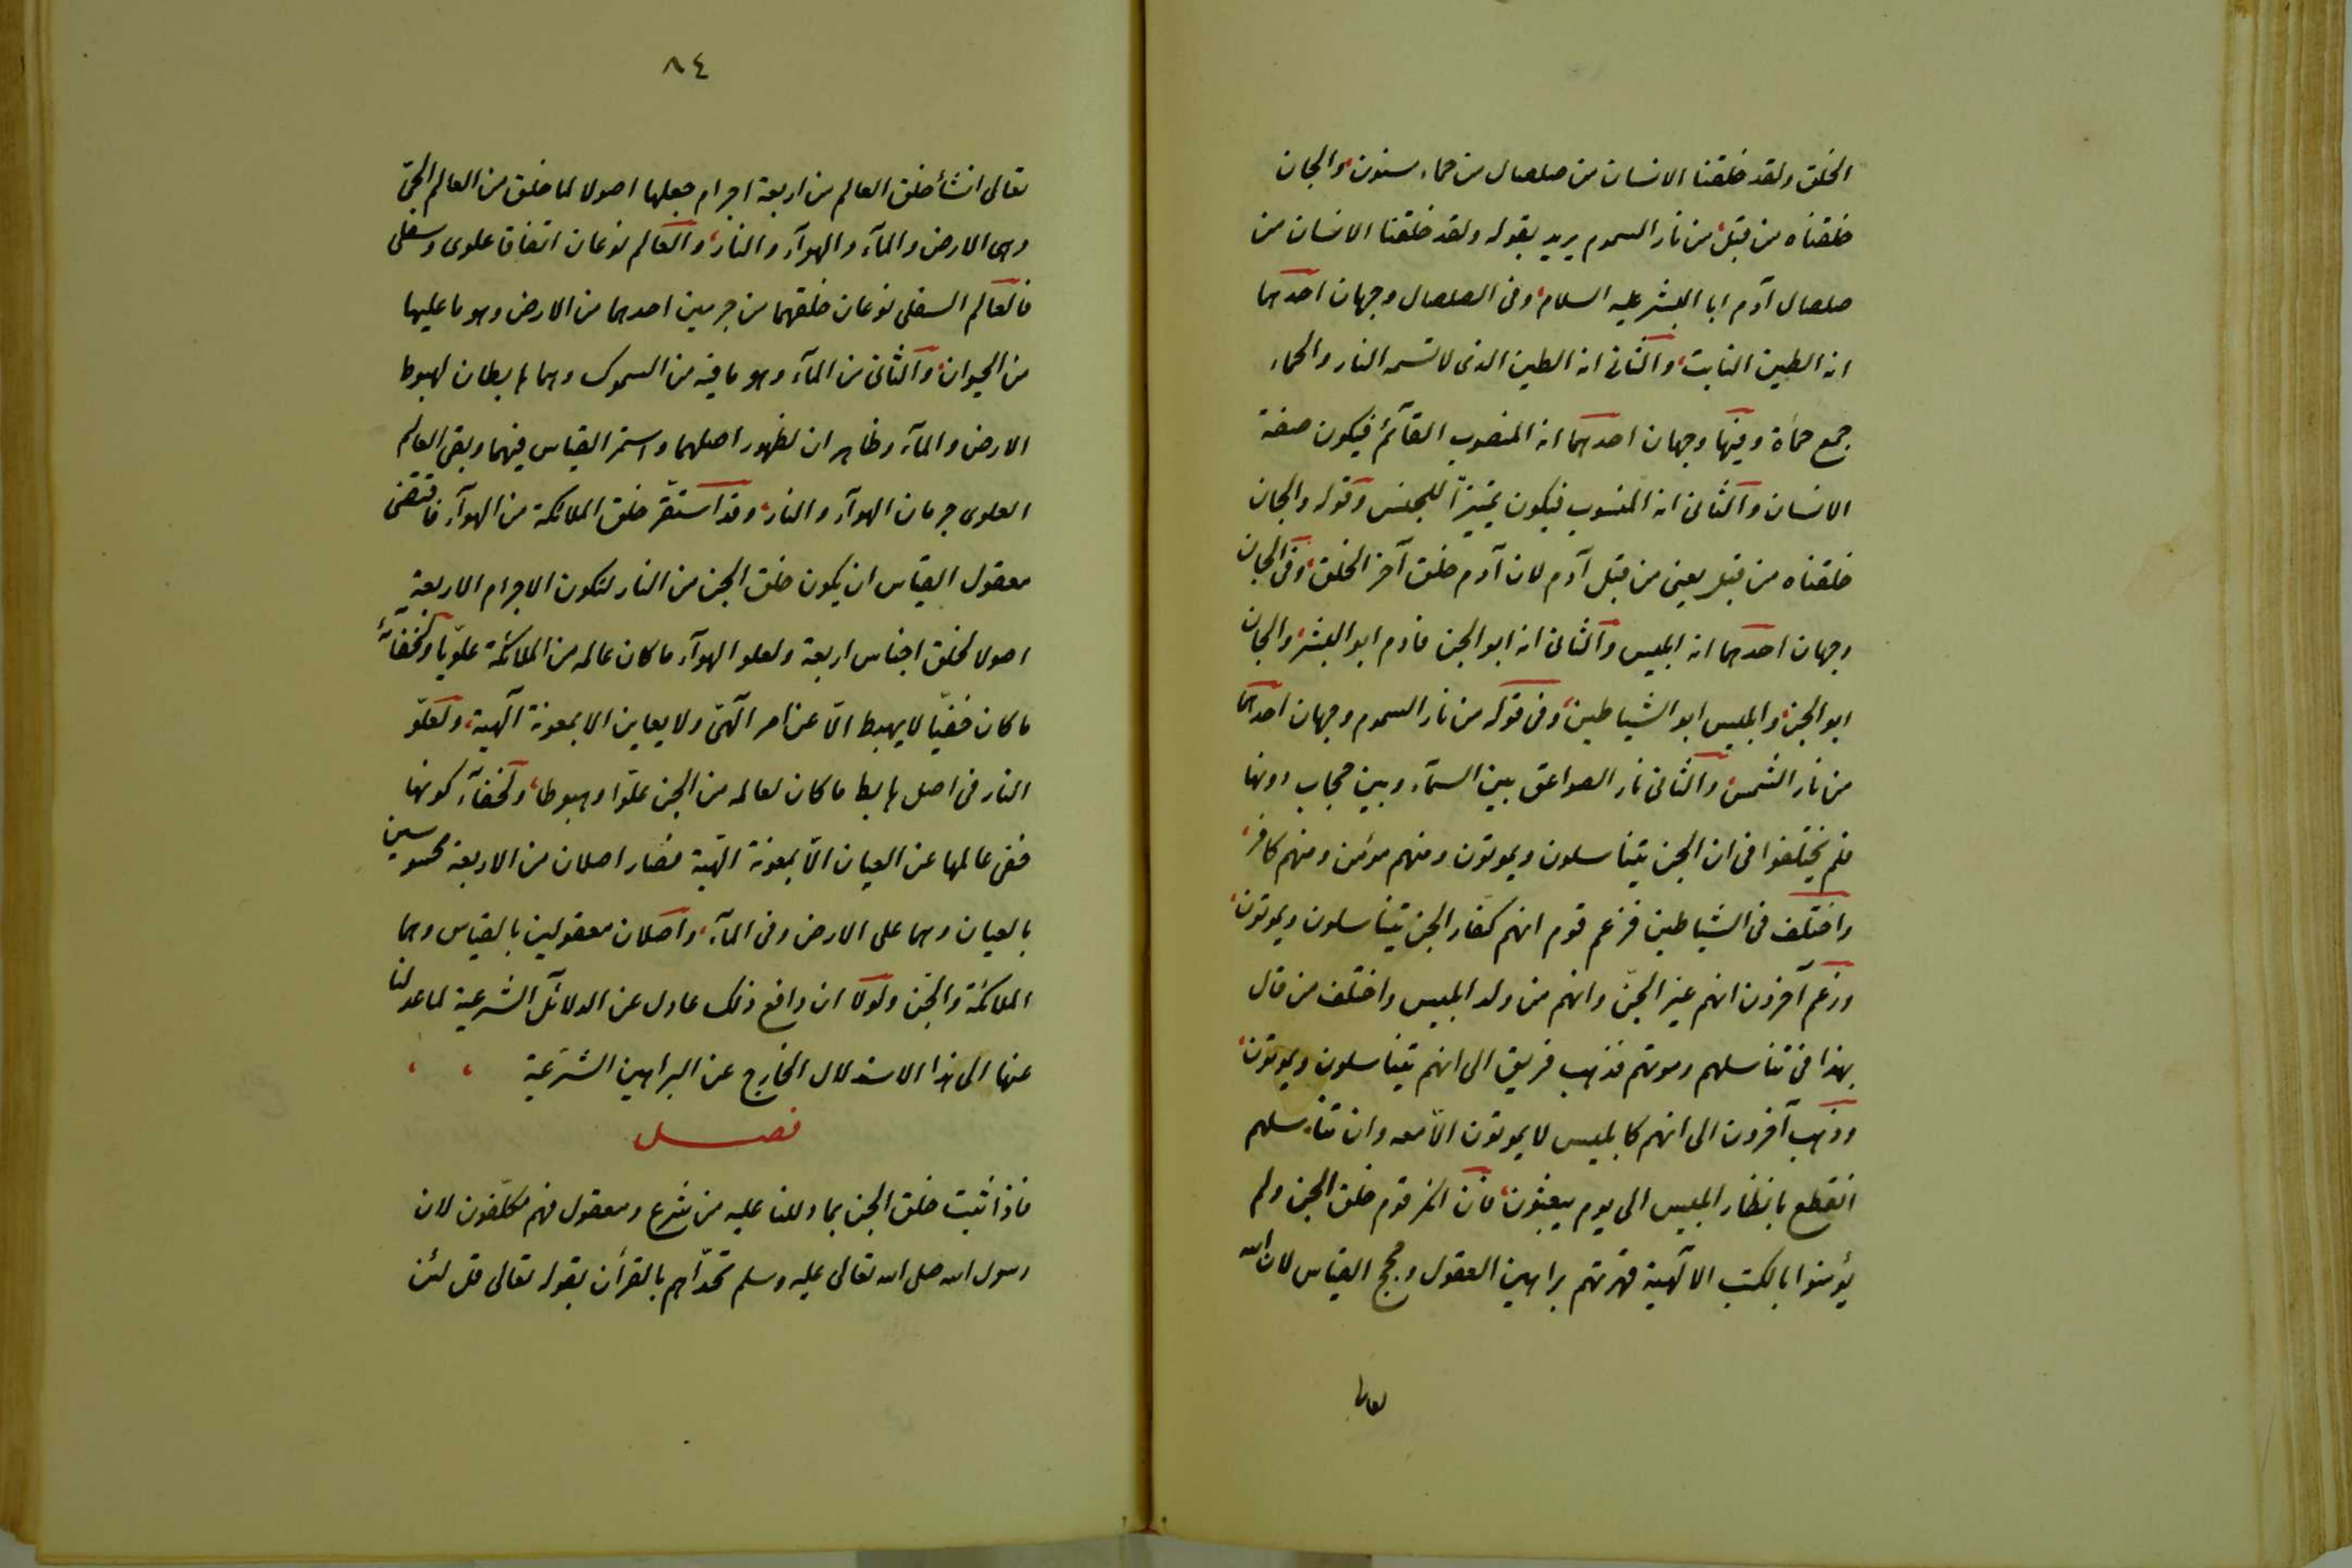 الخلق ولقد خلقنا الانسان من صلصال من حماء مسنون والجان
خلقناه من قبل من نار السموم يريد بقوله ولقد خلقنا الانسان من
صلصال آدم ابا البشر عليه السلام وفى الصلصال وجهان احدهما
انه الطين النابت والثانى انه الطين الذى لا تسه النار والحماء
جمع حمأة وفيها وجهان احدهما انه المنصوب القآئم فيكون صفة
الانسان والثانى انه المنسوب فيكون تمييزاً للجنس وقوله والجان
خلقناه من قبل يعنى من قبل آدم لان آدم خلق آخر الخلق وفى الجان
وجهان احدهما انه ابليس والثانى انه ابو الجن فادم ابو البشر والجان
ابو الجن وابليس ابو الشياطين وفى قوله من نار السموم وجهان احدهما
من نار الشمس والثانى نار الصواعق بين السمآء وبين حجاب دونها
فلم يختلفوا فى ان الجن يتناسلون ويموتون ومنهم مؤمن ومنهم كافر
واختلف فى الشياطين فزعم قوم انهم كفار الجن يتناسلون ويموتون
وزعم آخرون انهم غير الجنّ وانهم من ولد ابليس واختلف من قال
بهذا فى تناسلهم وموتهم فذهب فريق الى انهم يتناسلون ويموتون
وذهب آخرون الى انهم كابليس لا يموتون الّا معه وان تناسلهم
انقطع بانظار ابليس الى يوم يبعثون فان انكر قوم خلق الجن ولم
يؤمنوا بالكتب الآلهية قهرتهم براهين العقول وحجج القياس لان الله
تعالى
٨٤
تعالى انشأ خلق العالم من اربعة اجرام جعلها اصولا لما خلق من العالم الحىّ
وهى الارض والمآء والهوآء والنار والعالم نوعان اتفاق علوى وسفلى
فالعالم السفلى نوعان خلقهما من جرمين احدهما من الارض وهو ما عليها
من الحيوان والثانى من المآء وهو ما فيه من السموك وهما هابطان لهبوط
الارض والمآء وظاهران لظهور اصلهما واستمر القياس فيهما وبقى العالم
العلوى جرمان الهوآء والنار وقد استقّر خلق الملائكة من الهوآء فاقتضى
معقول القياس ان يكون خلق الجن من النار لتكون الاجرام الاربعة
اصولا لخلق اجناس اربعة ولعلو الهوآء ما كان عالمه من الملائكة علويّا ولخفآئه
ما كان خفيّا لا يهبط الّا عن امر آلهىّ ولا يعاين الا بمعونة آلهية ولعلوّ
النار فى اصل هابط ما كان لعالمه من الجن علوّا وهبوطا ولخفآء كونها
خفى عالمها عن العيان الّا بمعونة الهّية فصار اصلان من الاربعة محسوسين
بالعيان وهما على الارض وفى المآء واصلان معقولين بالقياس وهما
الملائكة والجن ولولا ان دافع ذلك عادل عن الدلائل الشرعية لما عدلنا
عنها الى هذا الاستدلال الخارج عن البراهين الشرعية
فصل
فاذا ثبت خلق الجن بما دللنا عليه من شرع ومعقول فهم مكلّفون لان
رسول الله صلى الله تعالى عليه وسلم تحدّاهم بالقرأن بقوله تعالى قل لئن